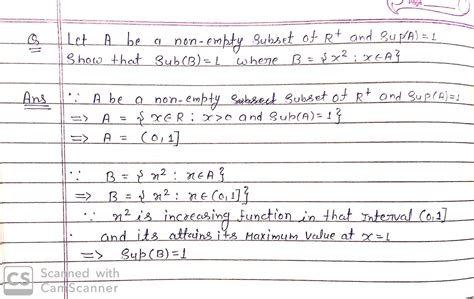 Q Let A be a non-empty subset of R⁺ and Sup(A)=1
Show that Sub(B)=1 where B = {x² : x∈A}
Ans ∵ A be a non-empty Subsect Subset of R⁺ and Sup(A)=1
⇒ A = {x∈R : x>0 and Sub(A)=1}
⇒ A = (0,1]
∵ B = {x² : x∈A}
⇒ B = {x² : x∈(0,1]}
∵ x² is increasing function in that Interval (0,1]
and its attains its Maximum Value at x=1
⇒ Sup(B)=1
CS Scanned with
CamScanner